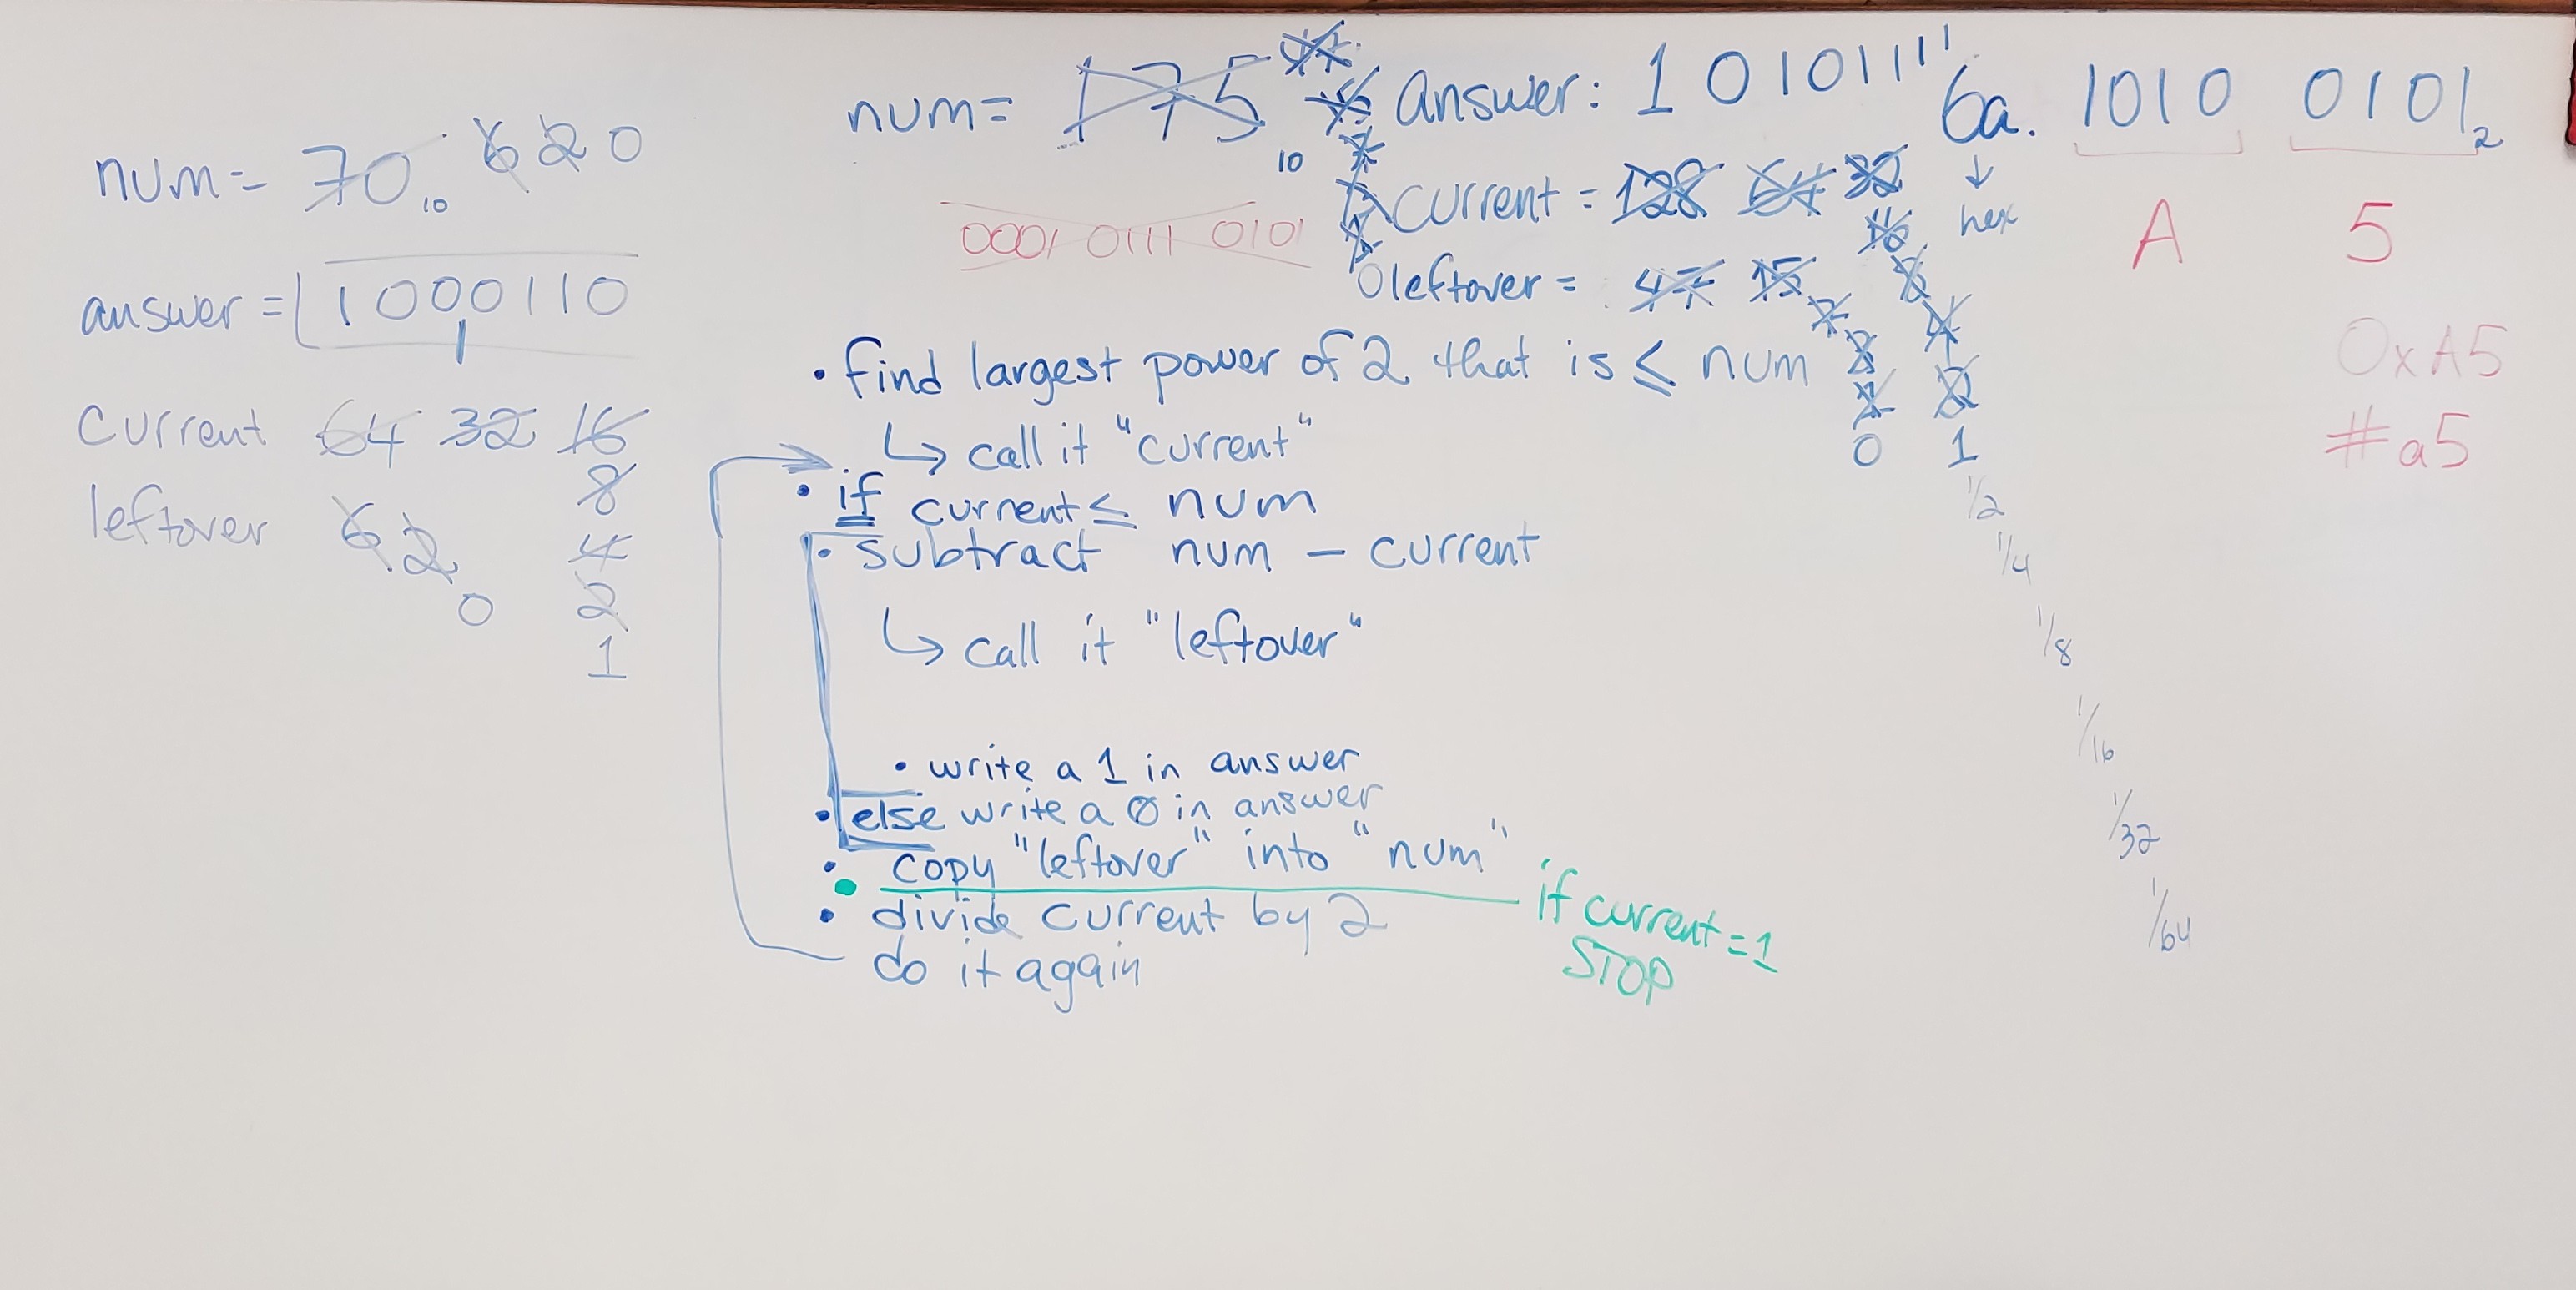 num = 70 10 6 2 0
answer = 1000110
current 64 32 16
8
4
2
1
leftover 6 2
0
num = 175 10 47
15
7
3
1
0
0001 0111 0101
Answer: 10101111
current = 128 64 32
16
8
4
2
1
1/2
1/4
1/8
1/16
1/32
1/64
leftover = 47 15
7
3
1
0
• find largest power of 2 that is ≤ num
↳ call it "current"
• if current ≤ num
• subtract num - current
↳ call it "leftover"
• write a 1 in answer
• else write a 0 in answer
• copy "leftover" into "num"
• if current = 1
STOP
• divide current by 2
do it again
6a. 1010 0101 2
↓
hex
A 5
0xA5
#a5